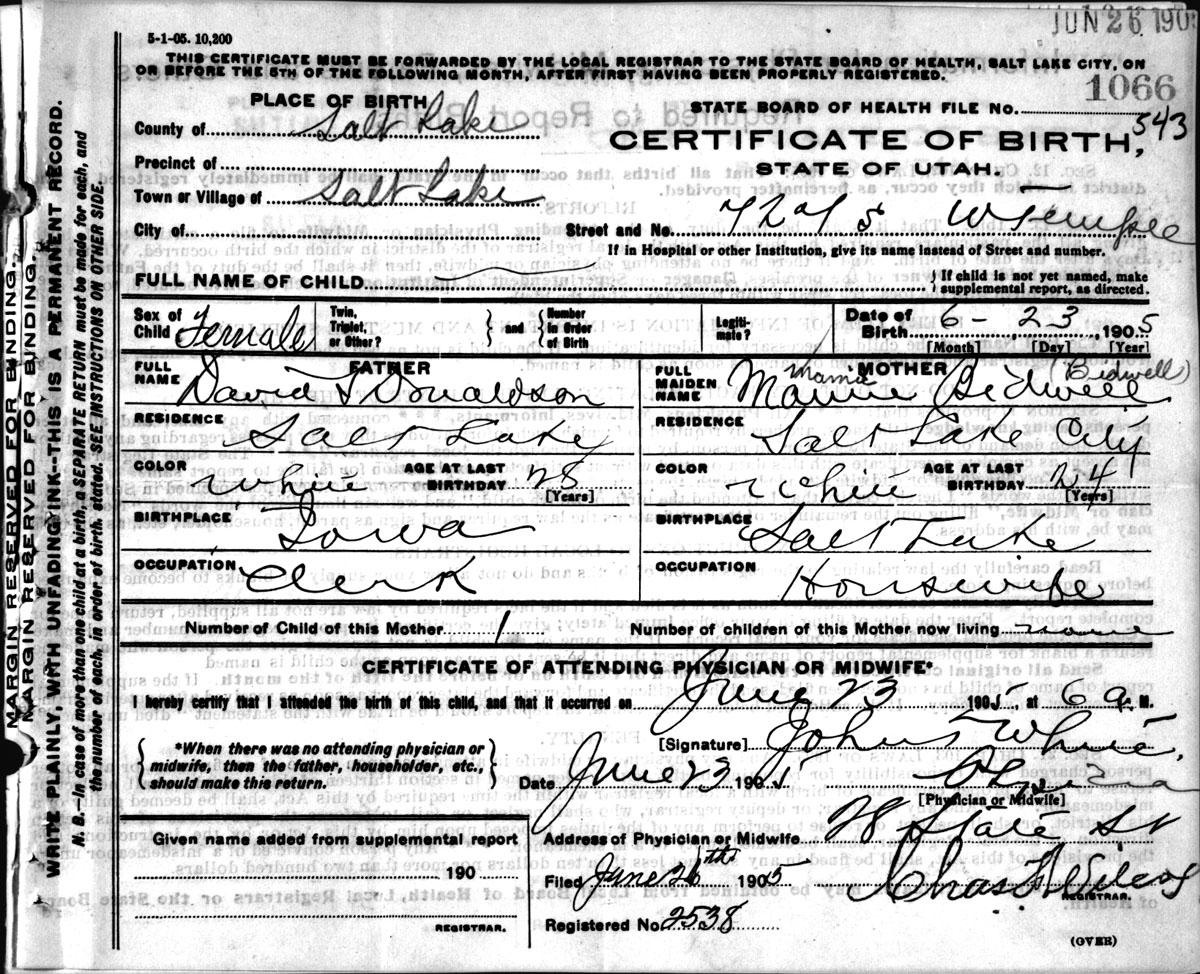 JUN 26 190
5-1-05. 10,200
THIS CERTIFICATE MUST BE FORWARDED BY THE LOCAL REGISTRAR TO THE STATE BOARD OF HEALTH, SALT LAKE CITY, ON
OR BEFORE THE 5TH OF THE FOLLOWING MONTH, AFTER FIRST HAVING BEEN PROPERLY REGISTERED.
1066
PLACE OF BIRTH
STATE BOARD OF HEALTH FILE NO.
543
County of Salt Lake
CERTIFICATE OF BIRTH,
Precinct of
STATE OF UTAH.
Town or Village of Salt Lake
City of
Street and No. W Temple
If in Hospital or other Institution, give its name instead of Street and number.
FULL NAME OF CHILD
If child is not yet named, make
supplemental report, as directed.
Sex of Child Female
Twin, Triplet, or Other?
and
Number in Order of Birth
Legiti- mate?
Date of Birth 6 - 23 1905
[Month] [Day] [Year]
FATHER
FULL NAME David S Donaldson
RESIDENCE Salt Lake
COLOR White AGE AT LAST BIRTHDAY 25
[Years]
BIRTHPLACE Iowa
OCCUPATION Clerk
MOTHER
Mamie (Bidwell)
FULL MAIDEN NAME Mamie Bidwell
RESIDENCE Salt Lake City
COLOR White AGE AT LAST BIRTHDAY 24
[Years]
BIRTHPLACE Salt Lake
OCCUPATION Housewife
Number of Child of this Mother 1 Number of children of this Mother now living none
CERTIFICATE OF ATTENDING PHYSICIAN OR MIDWIFE*
I hereby certify that I attended the birth of this child, and that it occurred on June 23 1905, at 6 a. M.
*When there was no attending physician or
midwife, then the father, householder, etc.,
should make this return.
[Signature] John S White
Date June 23 1905
[Physician or Midwife]
Given name added from supplemental report
190
REGISTRAR.
Address of Physician or Midwife State St
Filed June 26th 1905 Chas F Wilcox
REGISTRAR.
Registered No. 2538
(OVER)
MARGIN RESERVED FOR BINDING.
MARGIN RESERVED FOR BINDING.
WRITE PLAINLY, WITH UNFADING INK--THIS IS A PERMANENT RECORD.
N. B.--In case of more than one child at a birth, a SEPARATE RETURN must be made for each, and
the number of each, in order of birth, stated. SEE INSTRUCTIONS ON OTHER SIDE.